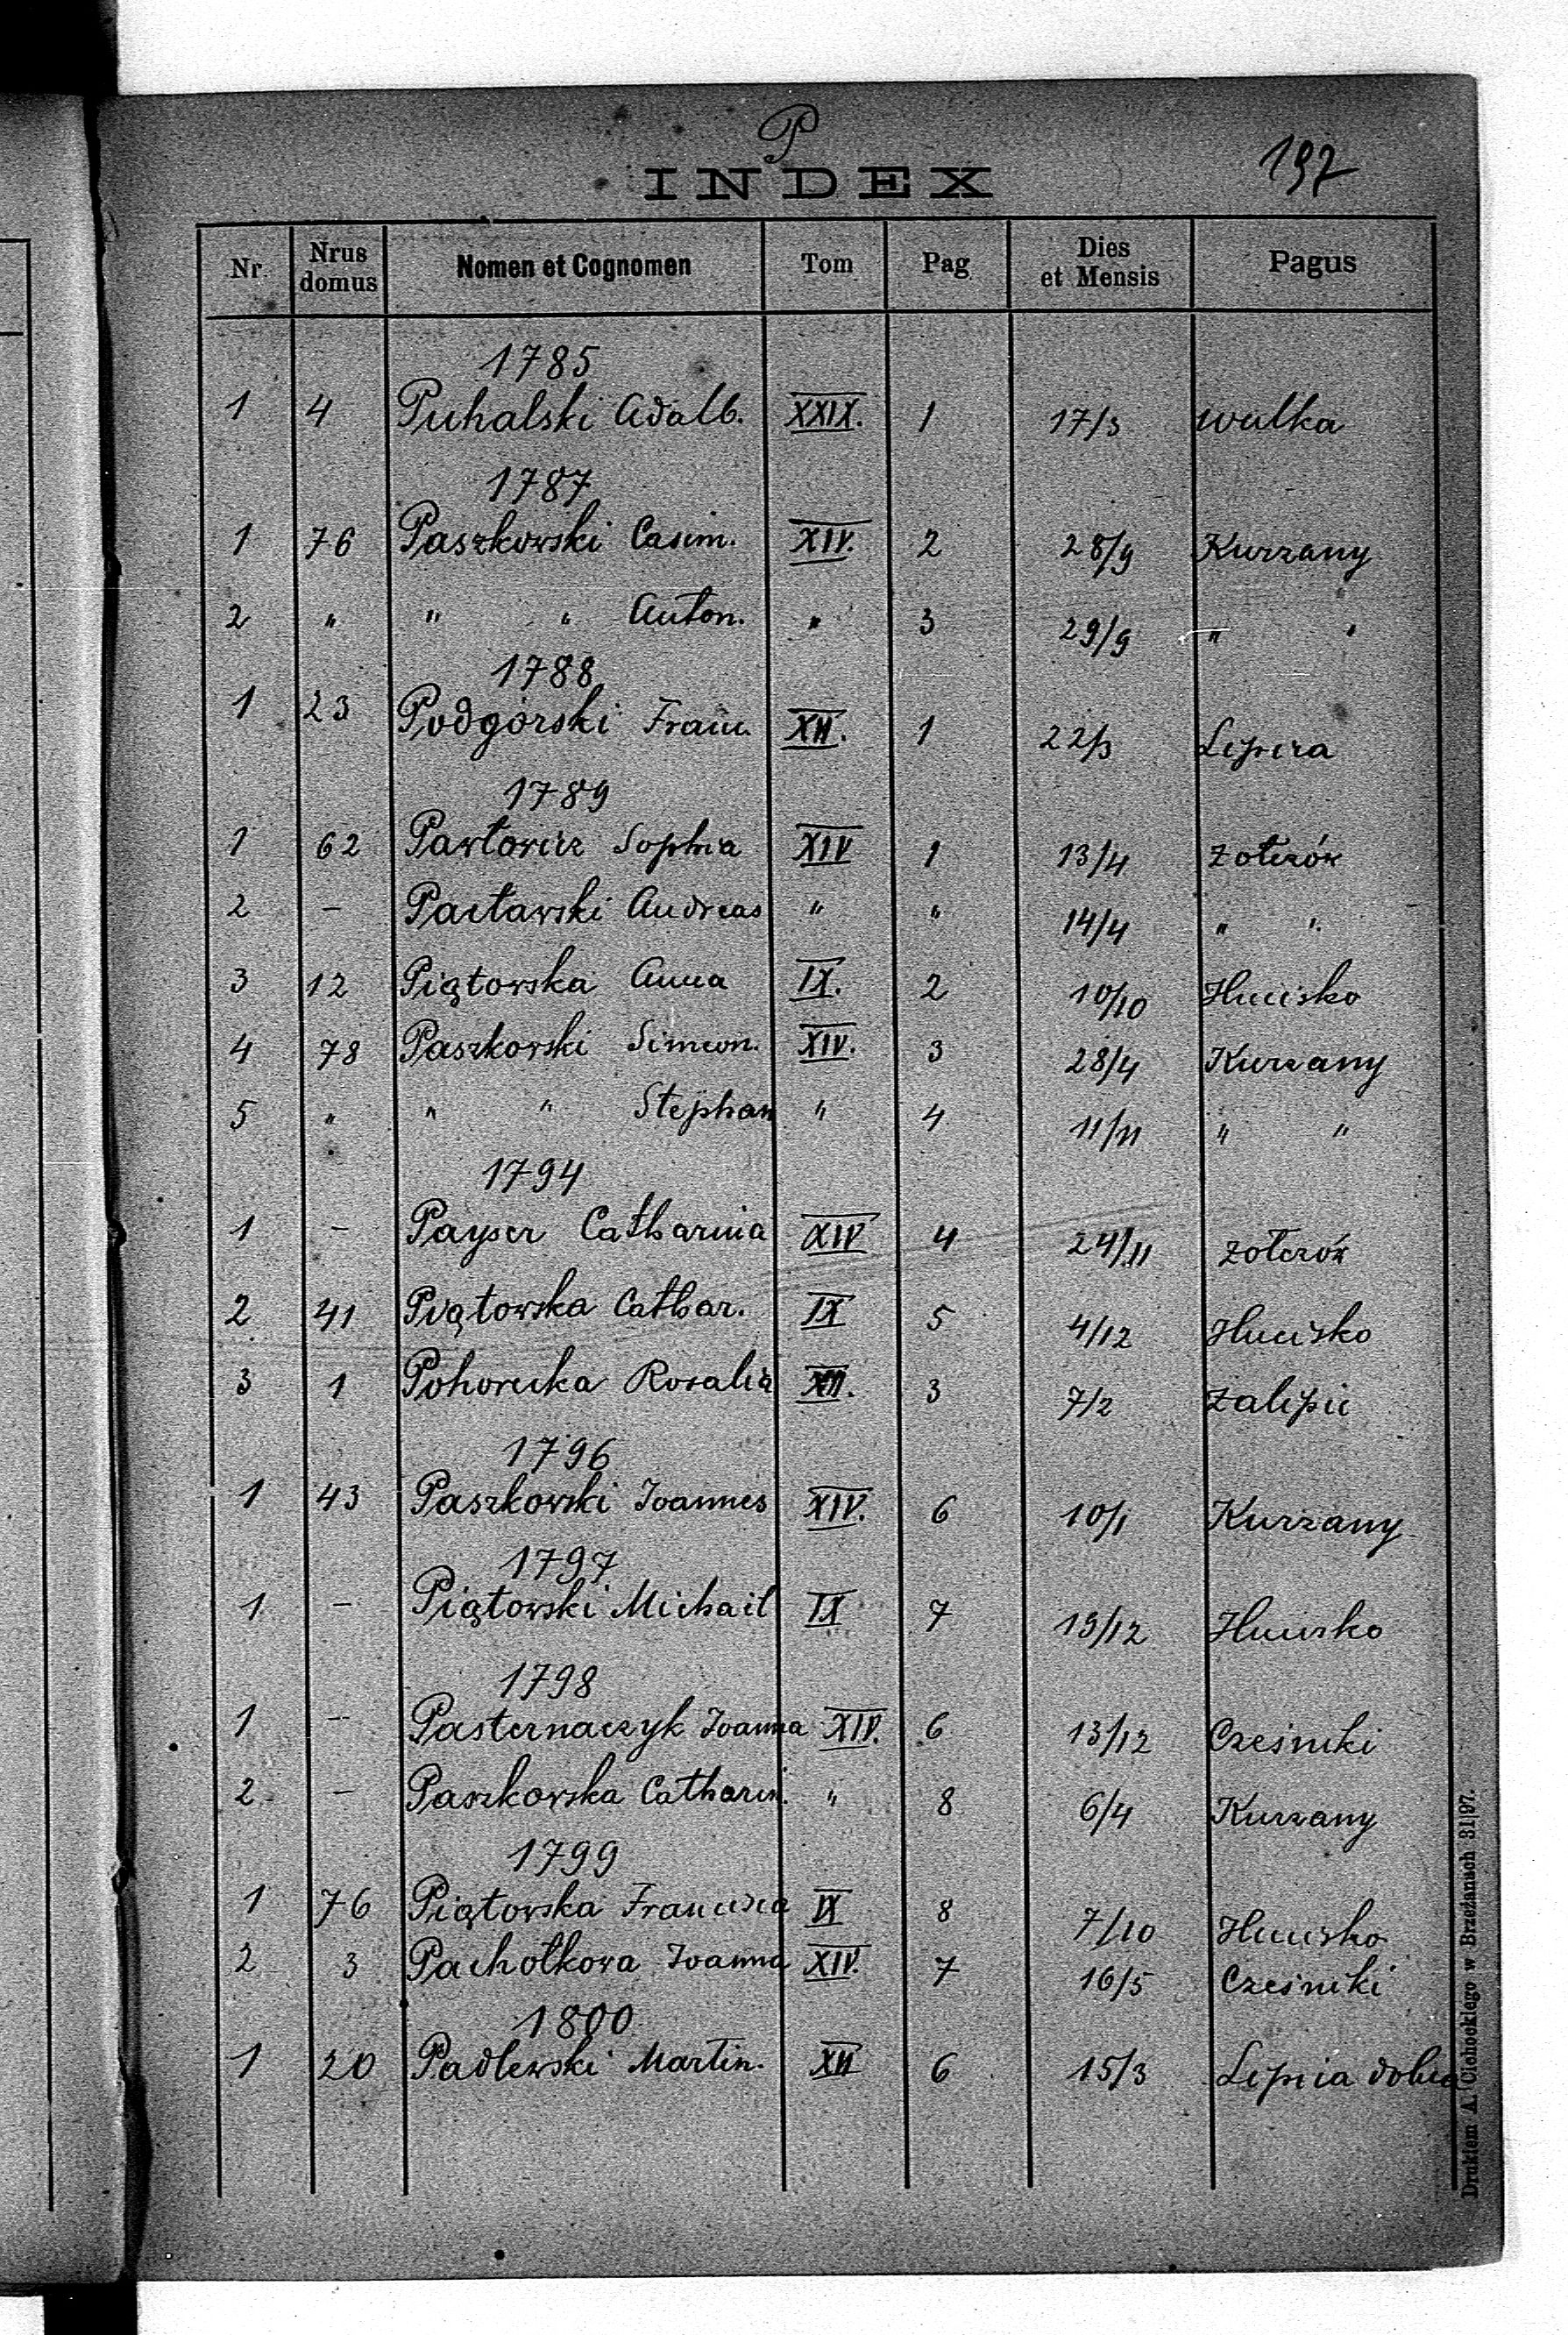 P
197
INDEX
Nr Nrus domus Nomen et Cognomen Tom Pag Dies et Mensis Pagus
1785
1 4 Puhalski Adalb. XXIX. 1 17/3 Wulka
1787
1 76 Paszkowski Casim. XIV. 2 28/9 Kurzany
2 " " " Anton. " 3 29/9 " "
1788
1 23 Podgórski Franc. XII. 1 22/3 Lipica
1789
1 62 Pawłowicz Sophia XIV 1 13/4 Żołczów
2 – Pacławski Andreas " " 14/4 " "
3 12 Piątowska Anna IX. 2 10/10 Hucisko
4 78 Paszkowski Simeon. XIV. 3 28/4 Kurzany
5 " " " Stephan " 4 11/11 " "
1794
1 – Payser Catharina XIV 4 24/11 Żołczów
2 41 Piątowska Cathar. IX 5 4/12 Hucisko
3 1 Pohorecka Rosalia XII. 3 7/2 Zalipie
1796
1 43 Paszkowski Joannes XIV. 6 10/1 Kurzany
1797
1 – Piątowski Michail IX 7 19/12 Hucisko
1798
1 – Pasternaczyk Joanna XIV. 6 13/12 Cześniki
2 – Paszkowska Catharin. " 8 6/4 Kurzany
1799
1 76 Piątowska Francisca IX 8 7/10 Hucisko
2 3 Pachołkowa Joanna XIV. 7 16/5 Cześniki
1800
1 20 Padlewski Martin. XII 6 15/3 Lipica dolna
Drukiem A. Cichockiego w Brzeżanach 31|97.